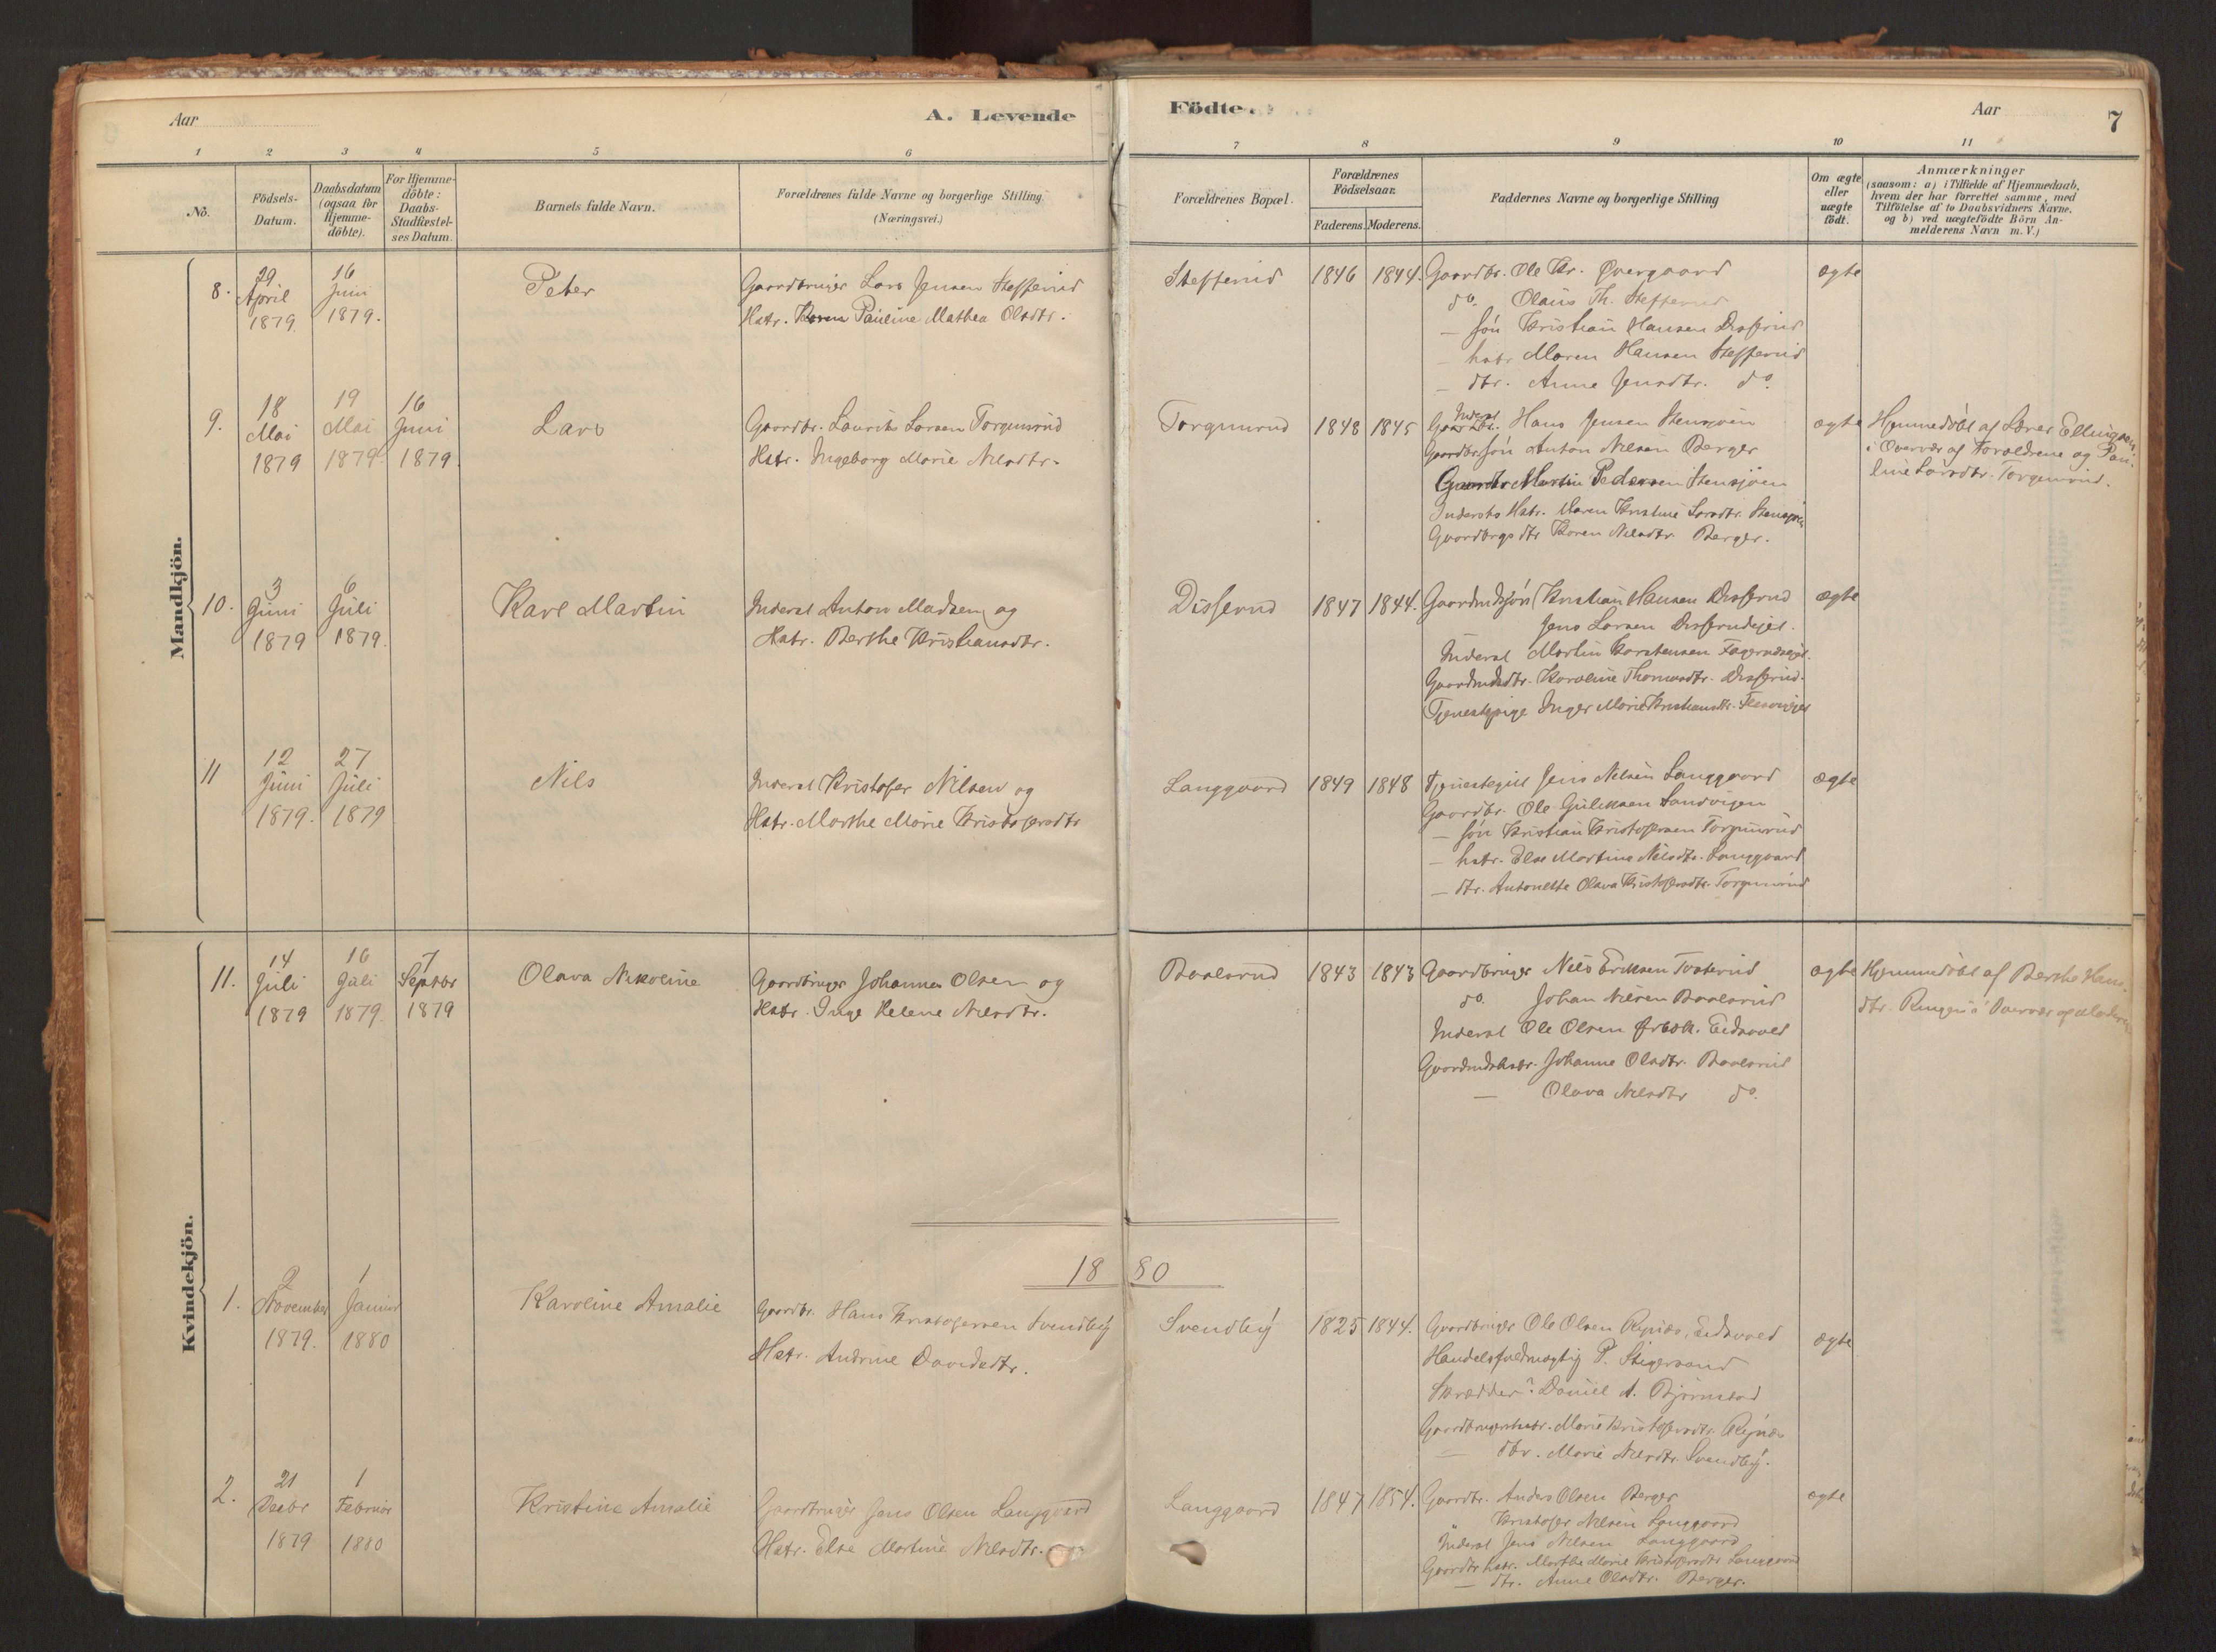 Aar
A. Levende
Födte.
Aar
7
1 2 3 4 5 6 7 8 9 10 11
No.
Födsels-Datum.
Daabsdatum (ogsaa for Hjemme-döbte).
For Hjemme-döbte: Daabs-Stadfæstel-ses Datum.
Barnets fulde Navn.
Forældrenes fulde Navne og borgerlige Stilling
(Næringsvei.)
Forældrenes Bopæl.
Forældrenes Födselsaar.
Faderens. Moderens.
Faddernes Navne og borgerlige Stilling
Om ægte eller uægte födt.
Anmærkninger
(saasom: a) i Tilfælde af Hjemmedaab,
hvem der har forrettet samme, med
Tilföielse af to Daabsvidners Navne,
og b) ved uægtefödte Börn An-
melderens Navn m. V.)
Mandkjön.
8.
29 April 1879
16 Juni 1879.
Peter
Gaardbruger Lars Jensen Stefferud
Hstr. Karen Pauline Mathea Olsdtr.
Stefferud
1846 1844.
Gaardbr. Ole Kr. Overgaard
do. Olaus Th. Stefferud
— søn Kristian Hansen Disserud
— hstr Maren Hansen Stefferud
— dtr. Anne Jensdtr. do.
ægte
9.
18 Mai 1879
19 Mai 1879
16 Juni 1879.
Lars
Gaardbr. Laurits Larsen Torgunrud
Hstr. Ingeborg Marie Nilsdtr.
Torgunrud
1848 1845
Inderst Hans Jensen Stensjøen
Gaardbr.søn Anton Nilsen Berger
Gaardbr Martin Pedersen Stensjøen
Indersts Hstr. Maren Kristine Larsdtr. Stensjøen
Gaardbrgs dtr Karen Nilsdtr Berger.
ægte
Hjemmedøbt af Lærer Ellingsen
i Overvær af Forældrene og Pau-
line Larsdtr. Torgunrud.
10.
3 Juni 1879
6 Juli 1879.
Karl Martin
Inderst Anton Madsen og
Hstr. Berthe Kristiansdtr.
Disserud
1847 1844.
Gaardmdssøn Kristian Hansen Disserud
Jens Larsen Disserudejet.
Inderst Martin Karstensen
Gaardmdsdtr. Karoline Thomasdtr. Disserud.
Tjenestepige Inger Marie Kristiansdtr.
ægte
11
12 Juni 1879.
27 Juli 1879
Nils
Inderst Kristofer Nilsen og
Hstr. Marthe Marie Kristofersdtr
Langgaard
1849 1848
Tjenestegut Jens Nilsen Langgaard
Gaardbr. Ole Guliksen Sandvigen
— søn Kristian Kristofersen Torgunrud
— hstr. Else Martine Nilsdtr. Langgaard
— dtr. Antonette Olava Kristofersdtr. Torgunrud
ægte
Kvindekjön.
11.
14 Juli 1879
16 Juli 1879.
7 Septbr 1879
Olava Nikoline
Gaardbruger Johannes Olsen og
Hstr. Inge Helene Nilsdtr.
Baalsrud
1843 1843
Gaardbruger Nils Eriksen Tosterud
do. Johan Nilsen Baalsrud
Inderst Ole Olsen Eidsvold
Gaardmdshstr. Johanne Olsdtr. Baalsrud
— Olava Nilsdtr do.
ægte
Hjemmedøbt af Berthe Hans-
dtr. Ringen i Overvær af Moderen
1880
1.
2 November 1879.
1 Januar 1880
Karoline Amalie
Gaardbr. Hans Kristofersen Svendby
Hstr. Andrine Davidsdtr.
Svendby
1825 1844.
Gaardbruger Ole Olsen Rynæs, Eidsvold
Handelsfuldmægtig P. Stigersand
Skrædder? Daniel A. Bjørnstad
Gaardbrugerhstr. Marie Kristofersdtr. Rynæs
— dtr. Marie Nilsdtr. Svendby.
ægte
2.
21 Decbr 1879
1 Februar 1880
Kristine Amalie
Gaardbruger Jens Olsen Langgaard
Hstr. Else Martine Nilsdtr.
Langgaard
1847 1854.
Gaardbr. Anders Olsen Berger
Kristofer Nilsen Langgaard
Inderst Jens Nilsen Langgaard
Gaardbr hstr. Marthe Marie Kristofersdtr Langgaard
— dtr. Anne Olsdtr. Berger.
ægte